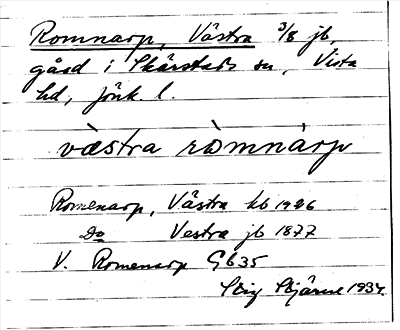 Romnarp, Västra 3/8 jb,
gård i Skärstads sn, Vista
hd, Jönk. l.
västra ròmnàrp
Romenarp, Västra kb 1926
Do Vestra jb 1877
V. Romenarp Gb35
Stig Stjärne 1934.